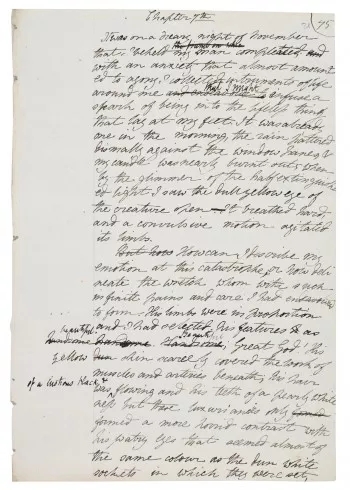 75
Chapter 7th
It was on a dreary night of November
that I beheld my man compleated and
with an anxiety that almost amount
ed to agony, I collected instruments of life
around me that I might infuse a
spark of being into the lifeless thing
that lay at my feet. It was already
one in the morning, the rain pattered
dismally against the window panes &
my candle was nearly burnt out, when
by the glimmer of the half extinguish
ed light I saw the dull yellow eye of
the creature open It breathed hard,
and a convulsive motion agitated
its limbs.
But how How can I describe my
emotion at this catastrophe, or how deli
neate the wretch whom with such
infinite pains and care I had endeavoured
to form. His limbs were in proportion
and I had selected his features as
beautiful
handsome Handsome Beautiful; Great God! His
yellow dun skin scarcely covered the work of
muscles and arteries beneath; his hair
of a lustrous black &
was flowing and his teeth of a pearly white
ness but these luxuriancies only
formed a more horrid contrast with
his watry eyes that seemed almost of
the same colour as the dun white
sockets in which they were set,